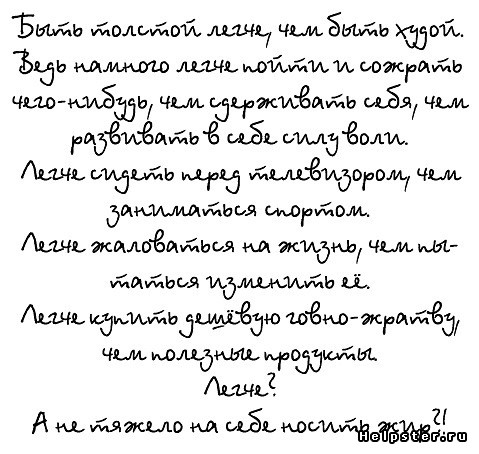 Быть толстой легче, чем быть худой.
Ведь намного легче пойти и сожрать
чего-нибудь, чем сдерживать себя, чем
развивать в себе силу воли.
Легче сидеть перед телевизором, чем
заниматься спортом.
Легче жаловаться на жизнь, чем пы-
таться изменить её.
Легче купить дешёвую говно-жратву,
чем полезные продукты.
Легче?
А не тяжело на себе носить жир?!
Helpster.ru